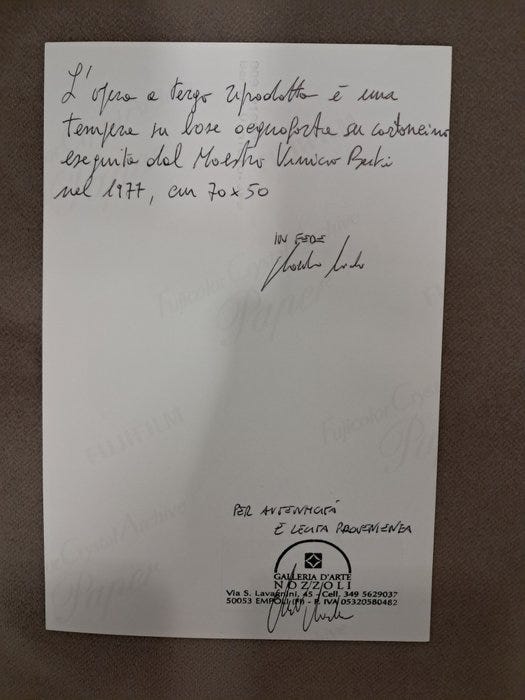 L'opera a tergo riprodotta è una
tempera su base acquaforte su cartoncino
eseguita dal Maestro Vinicio Berti
nel 1977, cm 70x50
IN FEDE
PER AUTENTICITÀ
E LECITA PROVENIENZA
GALLERIA D'ARTE
NOZZOLI
Via S. Lavagnini, 45 - Cell. 349 5629037
50053 EMPOLI (FI) - P. IVA 05320580482
Fujicolor Crystal Archive
Paper
FUJIFILM
Fujicolor Crys
Crystal Archive
Paper